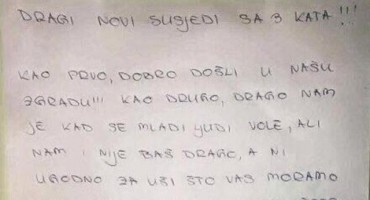 DRAGI NOVI SUSJEDI SA 3 KATA!!!
KAO PRVO, DOBRO DOŠLI U NAŠU
ZGRADU!!! KAO DRUGO, DRAGO NAM
JE KAD SE MLADI LJUDI VOLE, ALI
NAM I NIJE BAŠ DRAGO, A NI
UGODNO ZA UŠI ŠTO VAS MORAMO